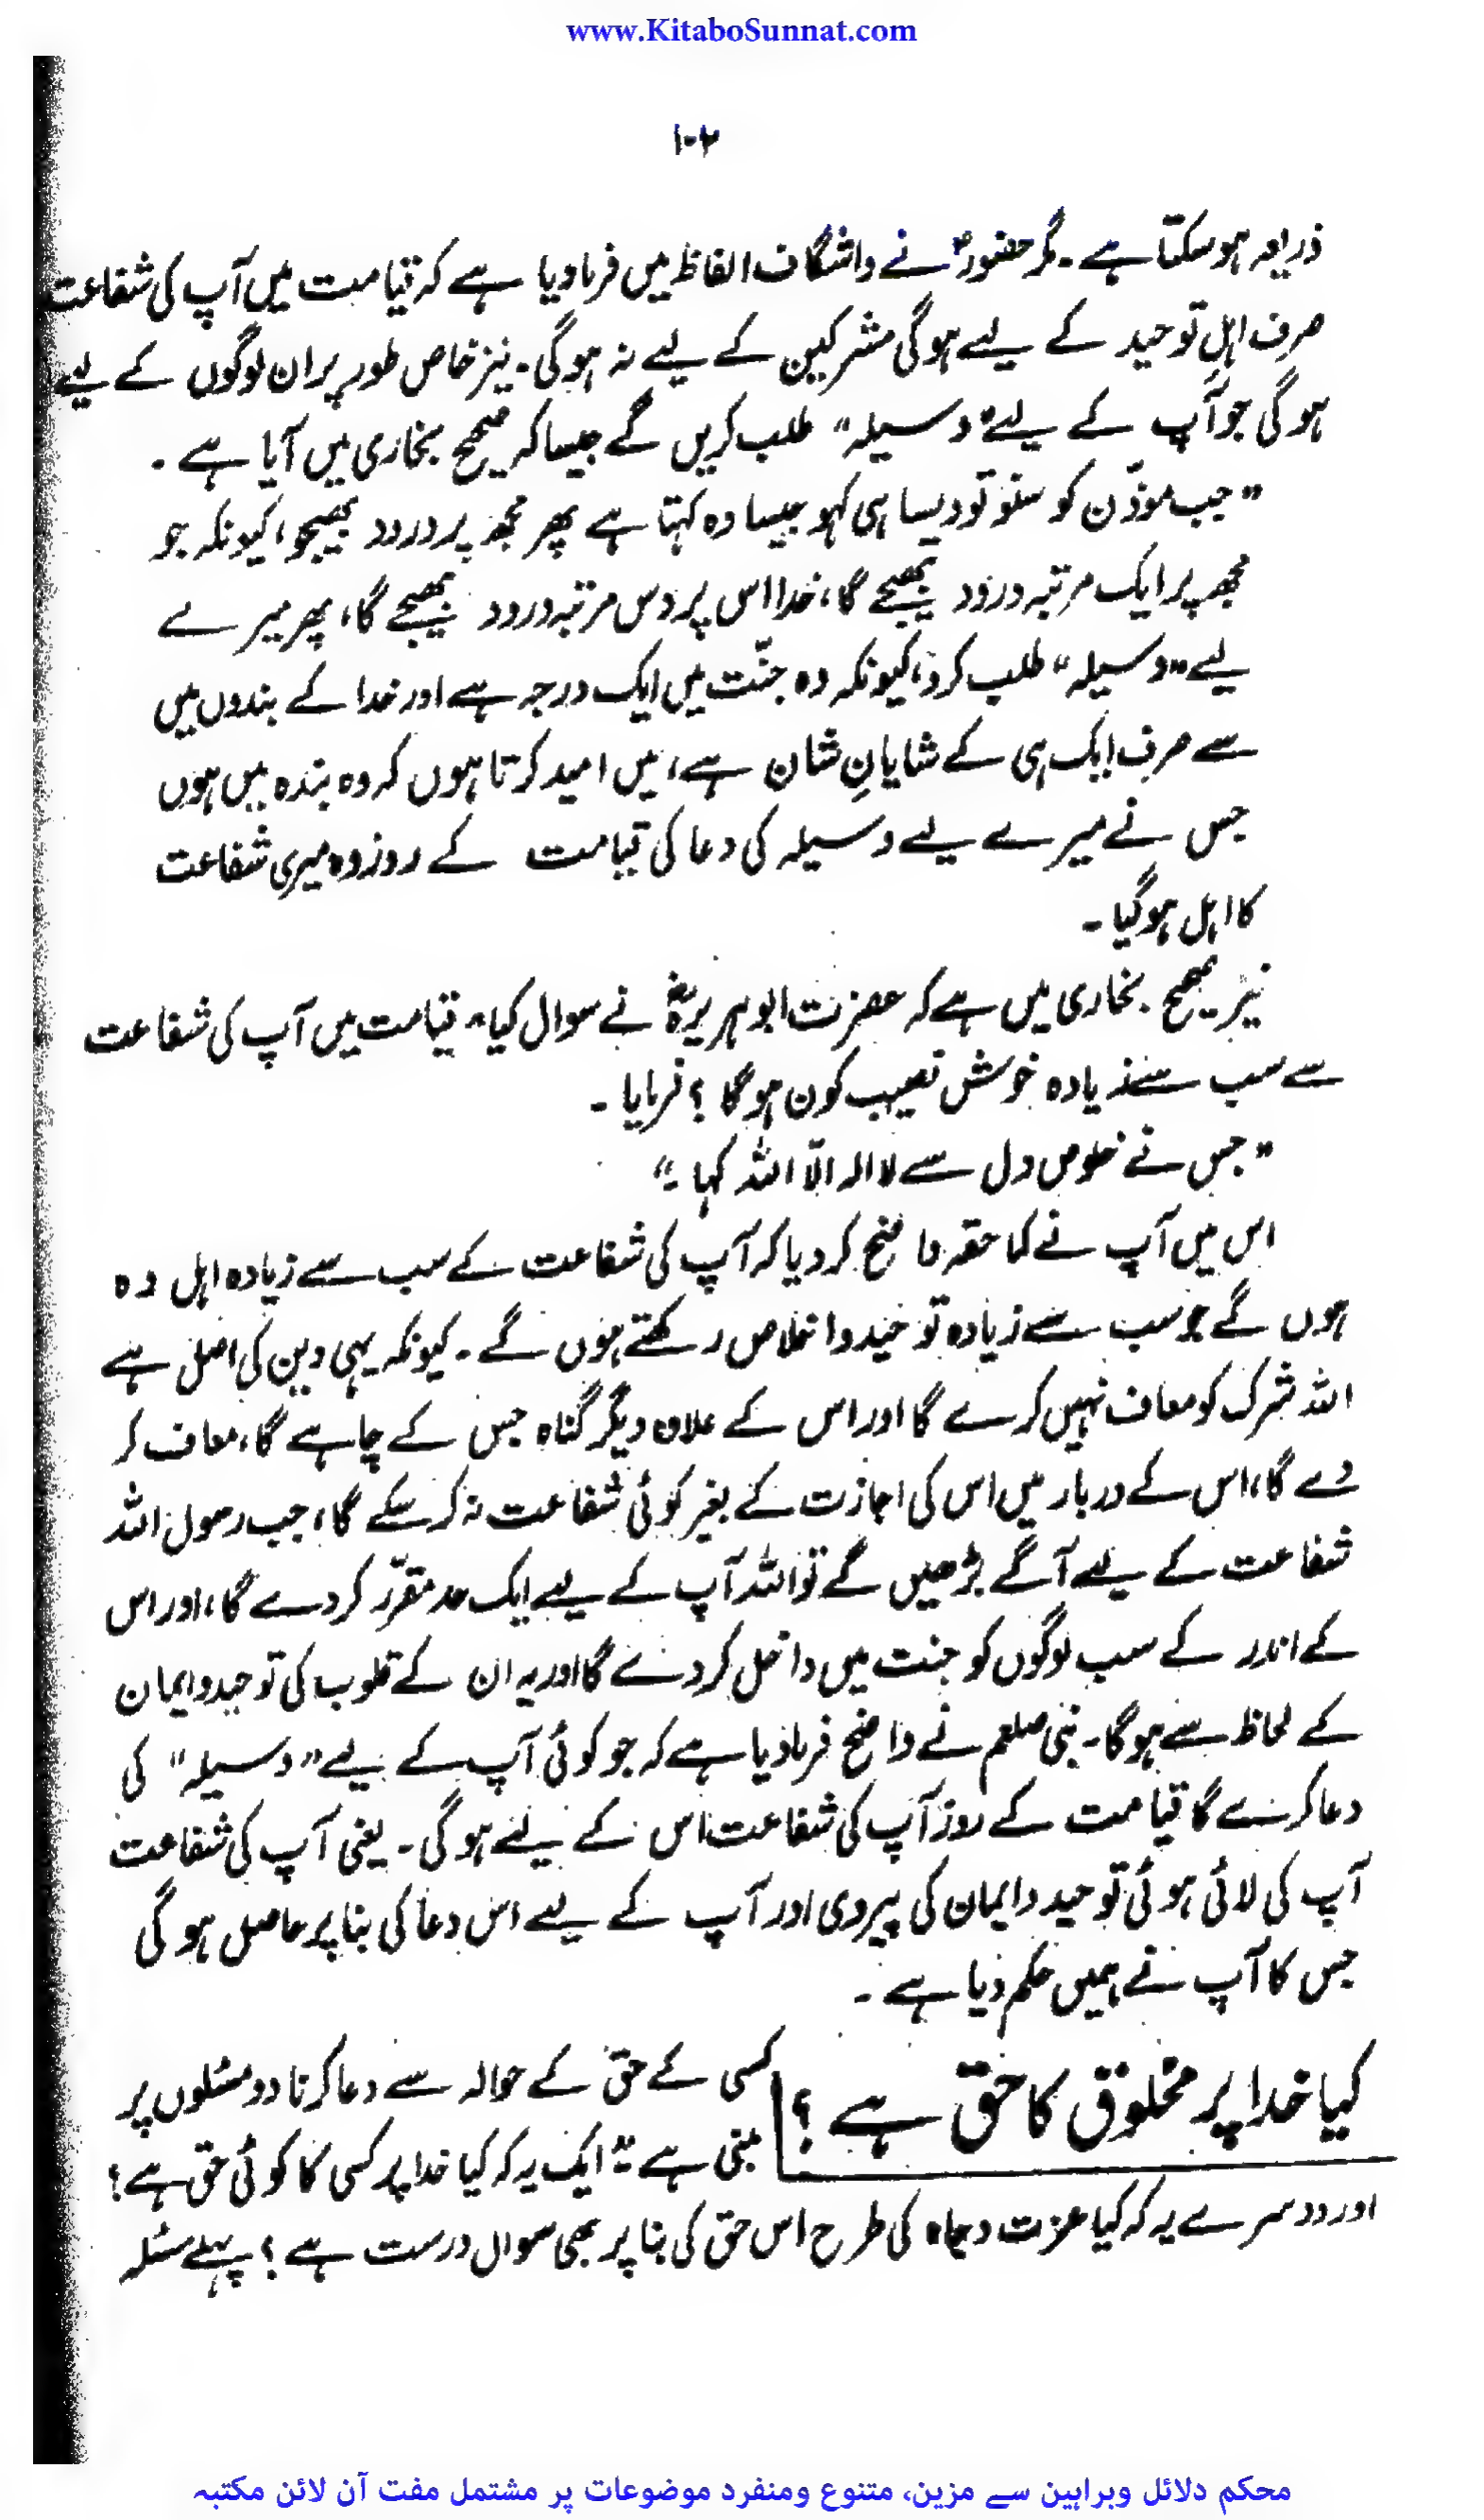 www.KitaboSunnat.com
۱۰۲
ذریعہ ہو سکتا ہے۔ مگر حضورؐ نے واشگاف الفاظ میں فرما دیا ہے کہ قیامت میں آپ کی شفاعت
صرف اہلِ توحید کے لیے ہو گی مشرکین کے لیے نہ ہو گی۔ نیز خاص طور پر ان لوگوں کے لیے
ہو گی جو آپ کے لیے "وسیلہ" طلب کریں گے جیسا کہ صحیح بخاری میں آیا ہے۔
"جب موذّن کو سنو تو ویسا ہی کہو جیسا وہ کہتا ہے پھر مجھ پر درود بھیجو، کیونکہ جو
مجھ پر ایک مرتبہ درود بھیجے گا، خدا اس پر دس مرتبہ درود بھیجے گا، پھر میرے
لیے "وسیلہ" طلب کرو، کیونکہ وہ جنّت میں ایک درجہ ہے اور خدا کے بندوں میں
سے صرف ایک ہی کے شایانِ شان ہے، میں امید کرتا ہوں کہ وہ بندہ میں ہوں
جس نے میرے لیے وسیلہ کی دعا کی قیامت کے روز وہ میری شفاعت
کا اہل ہو گیا۔
نیز صحیح بخاری میں ہے کہ حضرت ابو ہریرہؓ نے سوال کیا "قیامت میں آپ کی شفاعت
سے سب سے زیادہ خوش نصیب کون ہو گا؟ فرمایا۔
"جس نے خلوص دل سے لا الہ الّا اللہ کہا۔"
اس میں آپ نے کما حقہ واضح کر دیا کہ آپ کی شفاعت کے سب سے زیادہ اہل وہ
ہوں گے جو سب سے زیادہ توحید و اخلاص رکھتے ہوں گے۔ کیونکہ یہی دین کی اصل ہے
اللہ شرک کو معاف نہیں کرے گا اور اس کے علاوہ دیگر گناہ جس کے چاہے گا، معاف کر
دے گا، اس کے دربار میں اس کی اجازت کے بغیر کوئی شفاعت نہ کر سکے گا، جب رسول اللہ
شفاعت کے لیے آگے بڑھیں گے تو اللہ آپ کے لیے ایک حد مقرّر کر دے گا، اور اس
کے اندر کے سب لوگوں کو جنت میں داخل کر دے گا اور یہ ان کے قلوب کی توحید و ایمان
کے لحاظ سے ہو گا۔ نبی صلعم نے واضح فرما دیا ہے کہ جو کوئی آپ کے لیے "وسیلہ" کی
دعا کرے گا قیامت کے روز آپ کی شفاعت اس کے لیے ہو گی۔ یعنی آپ کی شفاعت
آپ کی لائی ہوئی توحید و ایمان کی پیروی اور آپ کے لیے اس دعا کی بنا پر حاصل ہو گی
جس کا آپ نے ہمیں حکم دیا ہے۔
کیا خدا پر مخلوق کا حق ہے؟
کسی کے حق کے حوالہ سے دعا کرنا دو مسئلوں پر
مبنی ہے: ایک یہ کہ کیا خدا پر کسی کا کوئی حق ہے؟
اور دوسرے یہ کہ کیا عزت و جاہ کی طرح اس حق کی بنا پر بھی سوال درست ہے؟ پہلے مسئلہ
محکم دلائل وبراہین سے مزین، متنوع ومنفرد موضوعات پر مشتمل مفت آن لائن مکتبہ